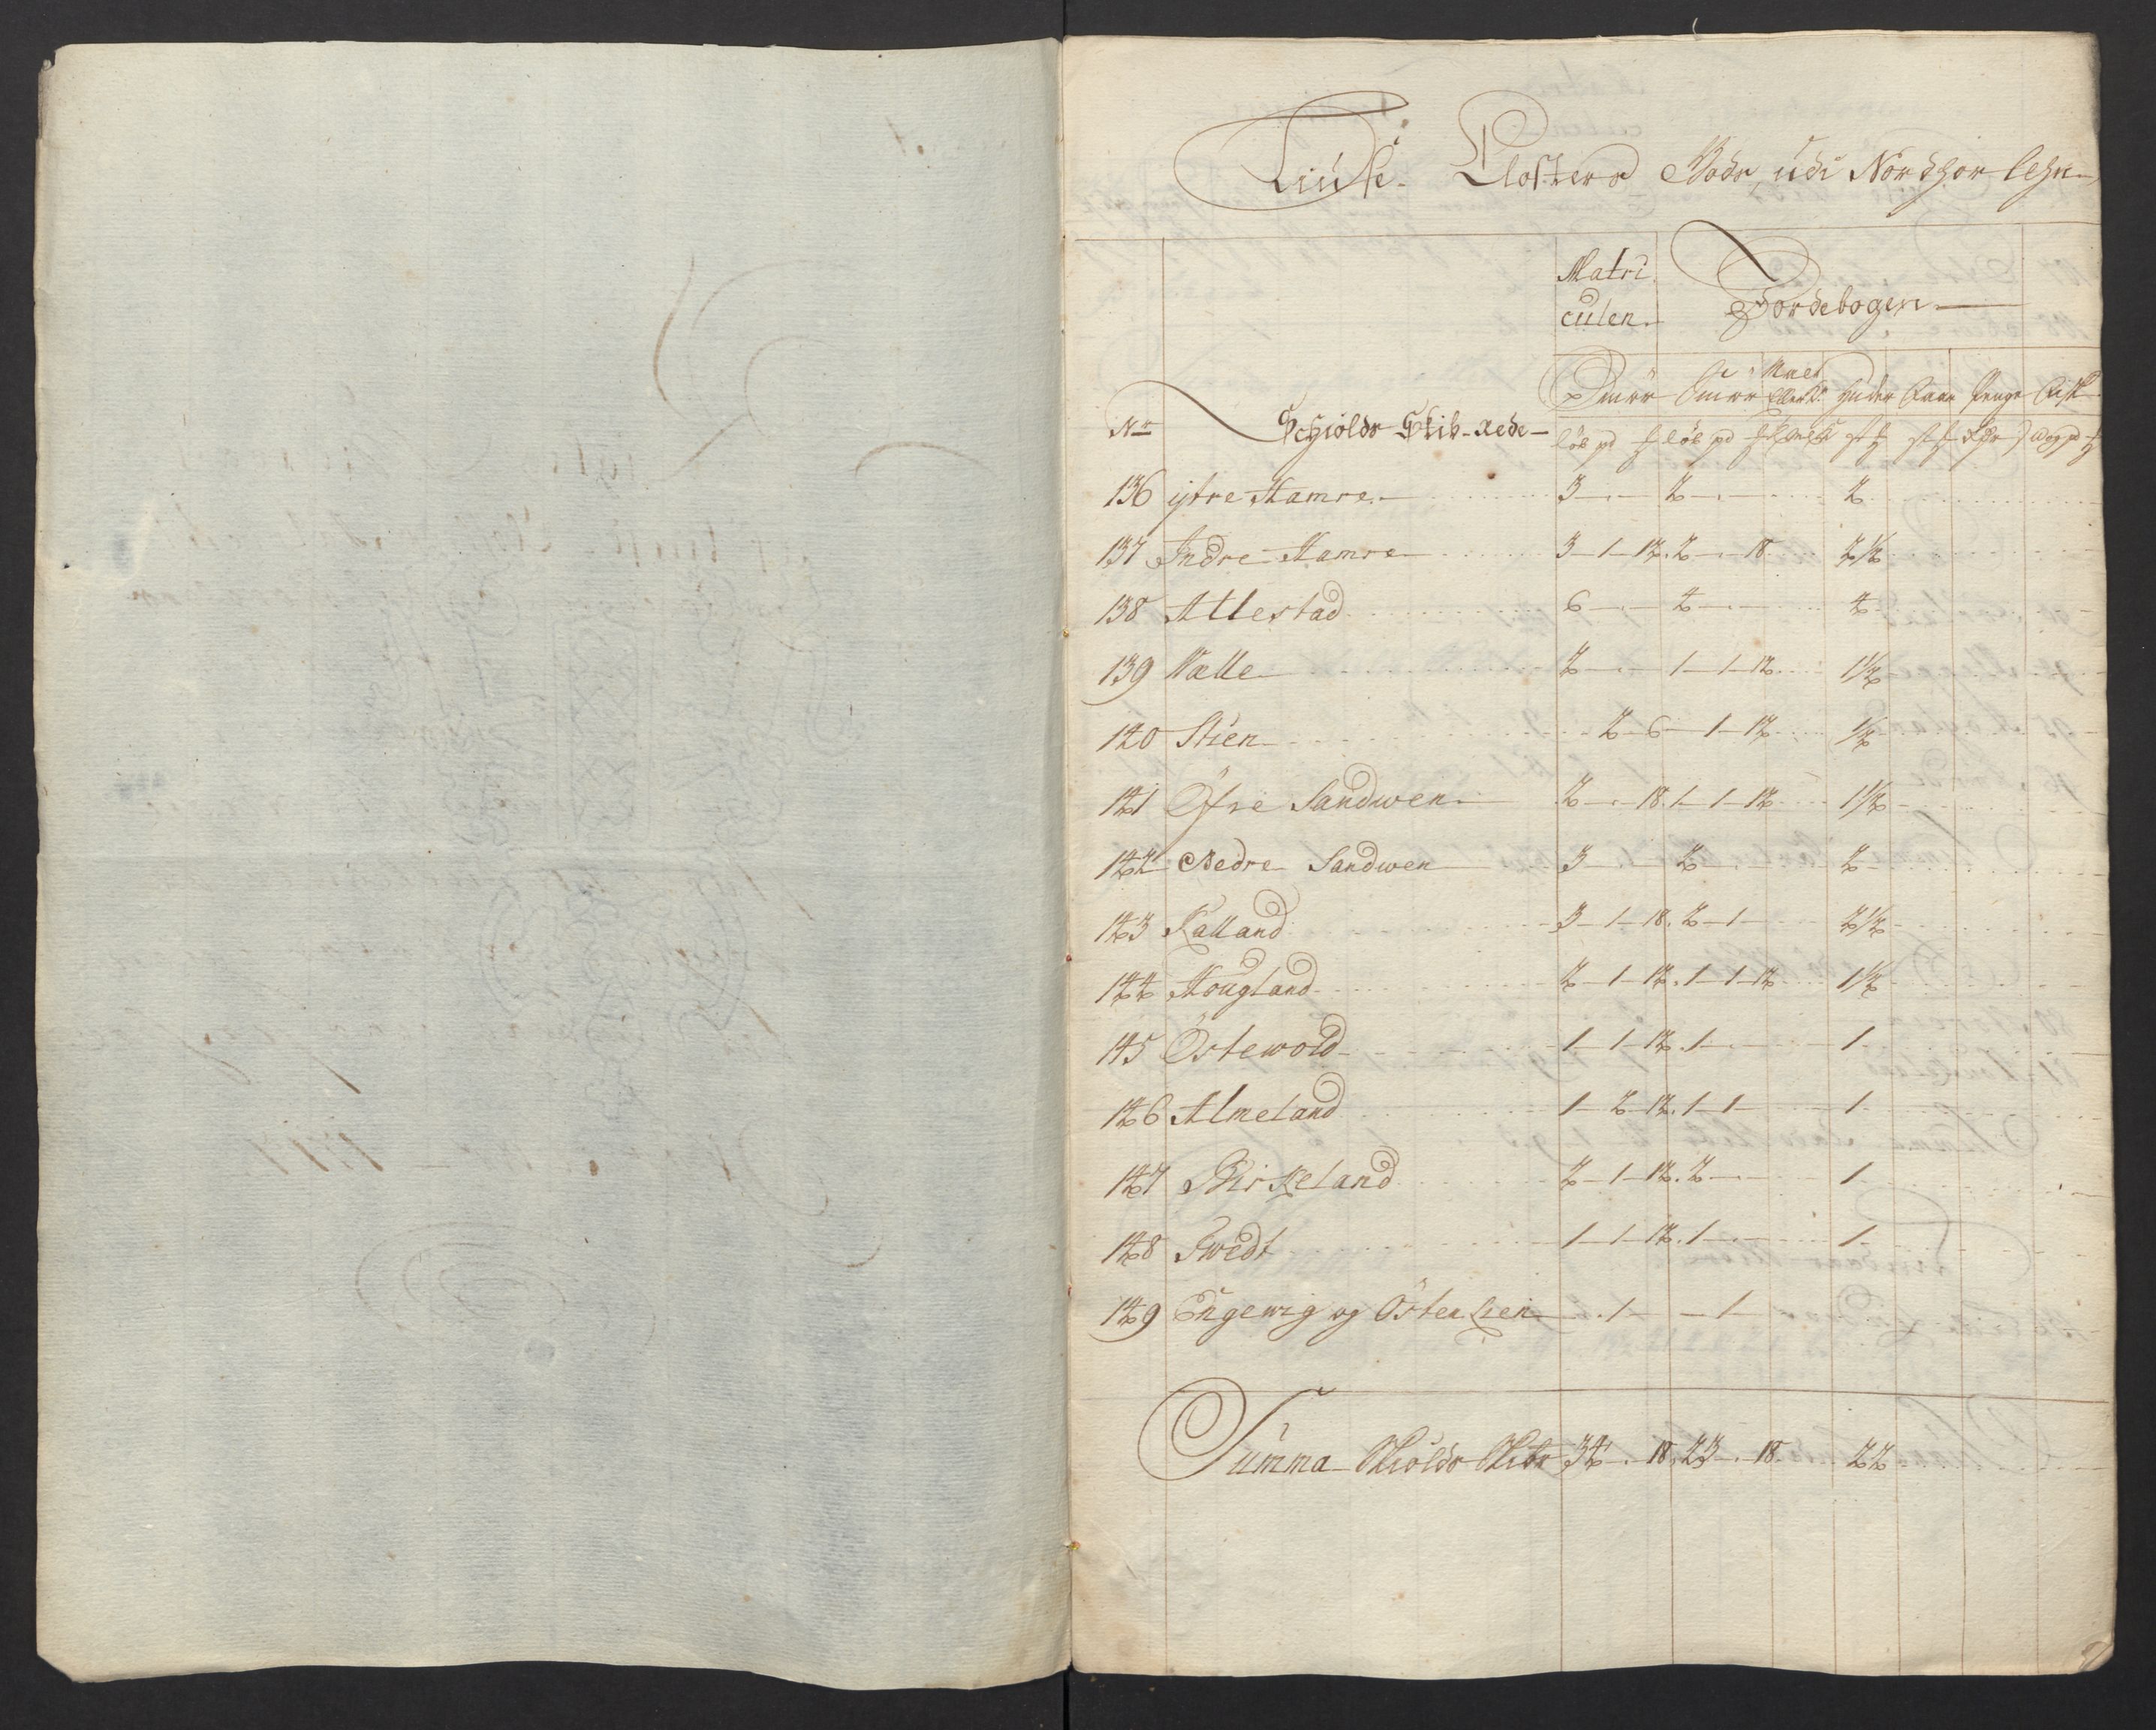 Liuse Closters Gods, udi Nordhor lehn
Matri
culen
Jordebogen
Smör Smör Miel Huder Penge Fisk
No Schiolds Skib-Rede löb pd löb pd
136 ytre Hamre 3 2 2
137 Indre Hamre 3 1 12. 2 18 2½
138 Allestad 6 4 4
139 Nalle 2 1 1 12 1½
140 Stien 2 6 1 12 ½
141 Öfre Sandwen 2 18. 1 1 12 1½
142 Nedre Sandwen 3 2 2
143 Kalland 3 1 18. 2 1 2½
144 Hougland 2 1 12. 1 1 12 1½
145 Östewold 1 1 12. 1 1
146 Almeland 1 2 12. 1 1 1
147 Birkeland 2 1 12. 2 1
148 Twedt 1 1 12. 1 1
149 Engewig og Östenlien 1 1
Summa Skiolds Skibr 34 18. 23 18 22